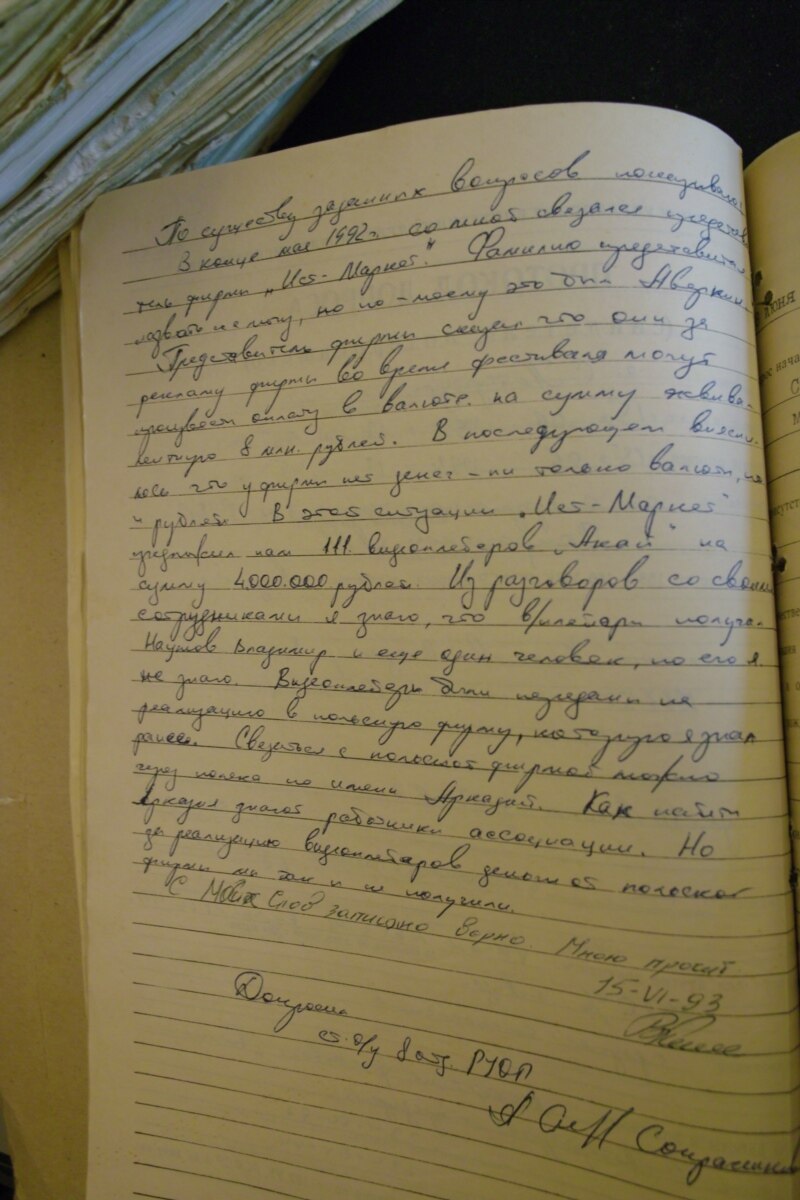 По существу заданных вопросов
В конце мая 1992г. со мной связался представи
тель фирмы „Ист-Маркет". Фамилию представителя
назвать не могу, но по-моему это был Аверкин.
Представитель фирмы сказал что они за
рекламу фирмы во время фестиваля могут
произвести оплату в валюте на сумму эквива-
лентную 8 млн. рублей. В последующем выясни
лось что у фирмы нет денег - ни только валюты, но
и рублей. В этой ситуации „Ист-Маркет"
предложил нам 111 видеоплейеров „Акай" на
сумму 4.000.000 рублей. Из разговоров со своими
сотрудниками я знаю, что в/плейеры получал
Наумов Владимир и еще один человек, но его я
не знаю. Видеоплейеры были переданы на
реализацию в польскую фирму, которую я знал
ранее. Связаться с польской фирмой можно
через поляка по имени Аркадий. Как найти
Аркадия знают работники ассоциации. Но
за реализацию видеоплейеров денег от польской
фирмы мы так и не получили.
С моих слов записано верно. Мною прочит
15-VI-93
Допросил
ст. о/у 8 отд. РУОП